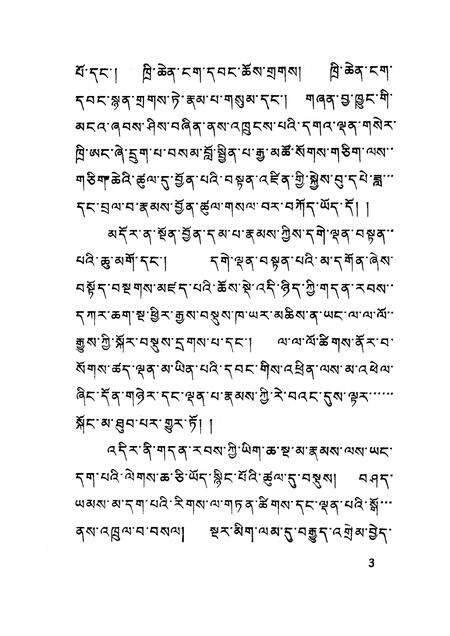 པོ་དང་། ཁྲི་ཆེན་ངག་དབང་ཆོས་གྲགས། ཁྲི་ཆེན་ངག་
དབང་སྙན་གྲགས་ཏེ་རྣམ་པ་གསུམ་དང་། གཞན་བྱ་ཁྱུང་གི་
མངའ་ཞབས་ཤིས་བཞིན་ནས་འཁྲུངས་པའི་དགའ་ལྡན་གསེར་
ཁྲི་ཨང་ཞེ་དྲུག་པ་བསམ་བློ་སྦྱིན་པ་རྒྱ་མཚོ་སོགས་གཅིག་ལས་་་
གཅིག་ཆེའི་ཚུལ་དུ་བྱོན་པའི་བསྟན་འཛིན་གྱི་སྐྱེས་བུ་དཔེ་ཟླ་་་
དང་བྲལ་བ་རྣམས་བྱོན་ཚུལ་གསལ་བར་བཀོད་ཡོད་དོ། །
མདོར་ན་སྔོན་བྱོན་དམ་པ་རྣམས་ཀྱིས་དགེ་ལྡན་བསྟན་་་
པའི་ཆུ་མགོ་དང་། དགེ་ལྡན་བསྟན་པའི་མ་དགོན་ཞེས་
བསྟོད་བསྔགས་མཛད་པའི་ཆོས་སྡེ་འདི་ཉིད་ཀྱི་གདན་རབས་་་
དཀར་ཆག་སྔ་ཕྱིར་རྒྱས་བསྡུས་ཁ་ཡར་མཆིས་ན་ཡང་ལ་ལ་ལོ་་་
རྒྱུས་ཀྱི་སྐོར་བསྡུས་དྲགས་པ་དང་། ལ་ལ་ལོ་ཚིགས་ནོར་བ་
སོགས་ཚད་ལྡན་མ་ཡིན་པའི་དབང་གིས་འཕྲིན་ལས་མ་འཕེལ་
ཞིང་དོན་གཉེར་དང་ལྡན་པ་རྣམས་ཀྱི་རེ་བའང་དུས་ལྟར་་་་་་
སྐོང་མ་ཐུབ་པར་གྱུར་ཏོ། །
འདིར་ནི་གདན་རབས་ཀྱི་ཡིག་ཆ་སྔ་མ་རྣམས་ལས་ཡང་
དག་པའི་ལེགས་ཆ་ཅི་ཡོད་སྙིང་པོའི་ཚུལ་དུ་བསྡུས། བཤད་
ཡམས་མ་དག་པའི་རིགས་ལ་གཏན་ཚིགས་དང་ལྡན་པའི་སྒོ་་་
ནས་འཁྲུལ་བ་བསལ། སྔར་མིག་ལམ་དུ་བརྒྱུད་འགྲེམ་བྱེད་
3